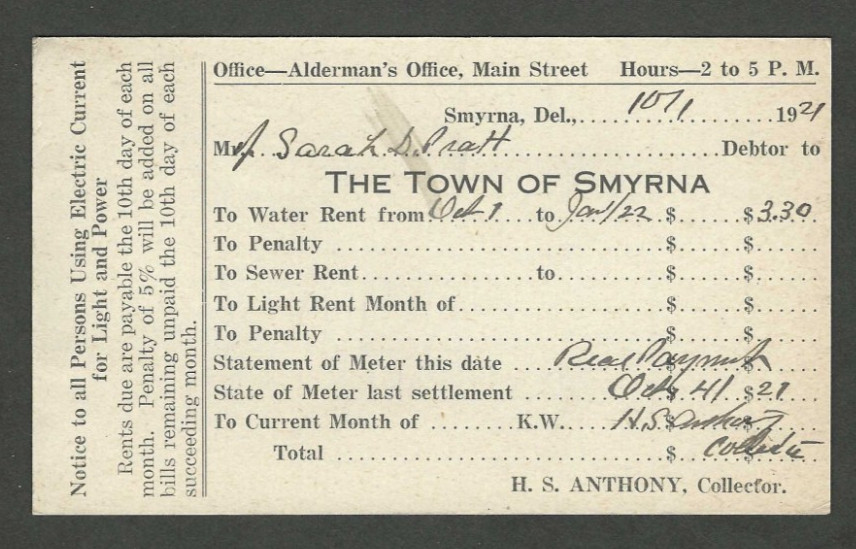 Notice to all Persons Using Electric Current
for Light and Power
Rents due are payable the 10th day of each
month. Penalty of 5% will be added on all
bills remaining unpaid the 10th day of each
succeeding month.
Office—Alderman's Office, Main Street Hours—2 to 5 P. M.
Smyrna, Del., 10/1 1921
Mrs. Sarah D. Pratt Debtor to
THE TOWN OF SMYRNA
To Water Rent from Oct 1 to Jan 1/22 $ $3.30
To Penalty $ $
To Sewer Rent to $ $
To Light Rent Month of $ $
To Penalty $ $
Statement of Meter this date Rec Payment
State of Meter last settlement Oct $ 4/ $21
To Current Month of K.W. H. S. Anthony
Total $ $ Collector
H. S. ANTHONY, Collector.